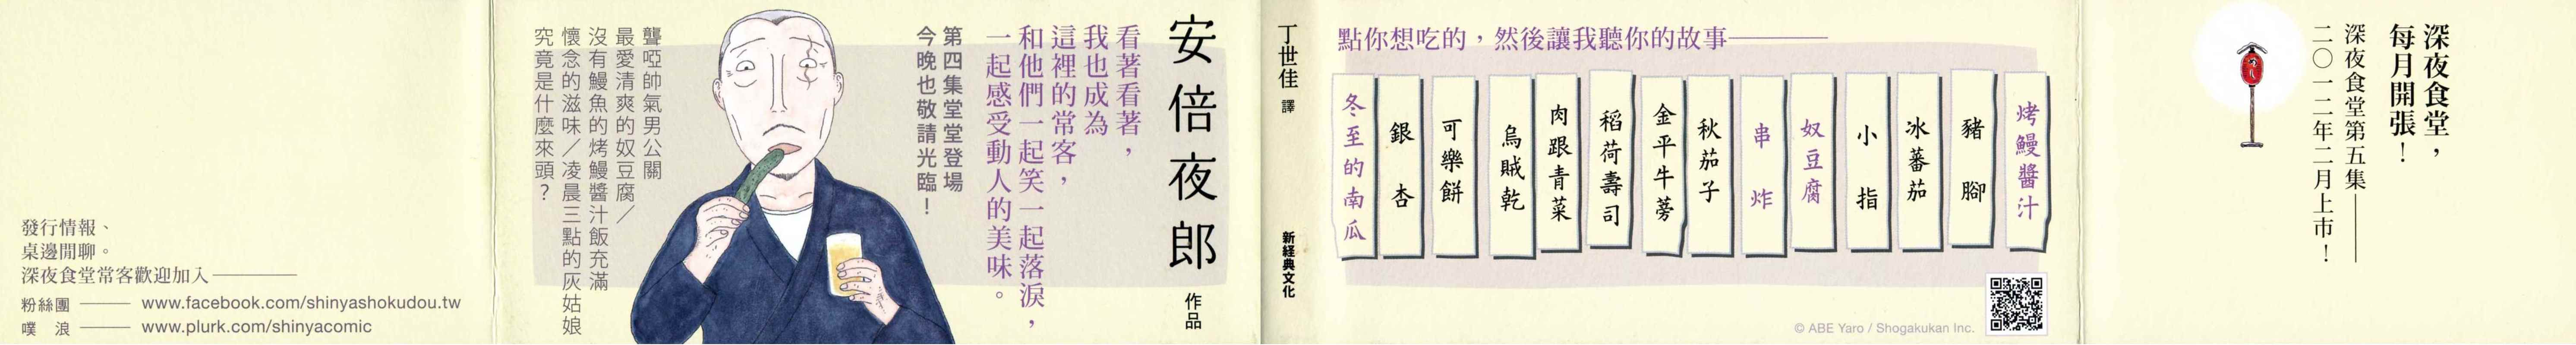 深夜食堂，
每月開張！
深夜食堂第五集——
二〇一二年二月上市！
點你想吃的，然後讓我聽你的故事———
烤鰻醬汁
豬腳
冰蕃茄
小指
奴豆腐
串炸
秋茄子
金平牛蒡
稻荷壽司
肉跟青菜
烏賊乾
可樂餅
銀杏
冬至的南瓜
© ABE Yaro / Shogakukan Inc.
丁世佳 譯
新経典文化
安倍夜郎 作品
看著看著，
我也成為
這裡的常客，
和他們一起笑一起落淚，
一起感受動人的美味。
第四集堂堂登場
今晚也敬請光臨！
聾啞帥氣男公關
最愛清爽的奴豆腐／
沒有鰻魚的烤鰻醬汁飯充滿
懷念的滋味／凌晨三點的灰姑娘
究竟是什麼來頭？
發行情報、
桌邊閒聊。
深夜食堂常客歡迎加入———
粉絲團 —— www.facebook.com/shinyashokudou.tw
噗浪 —— www.plurk.com/shinyacomic